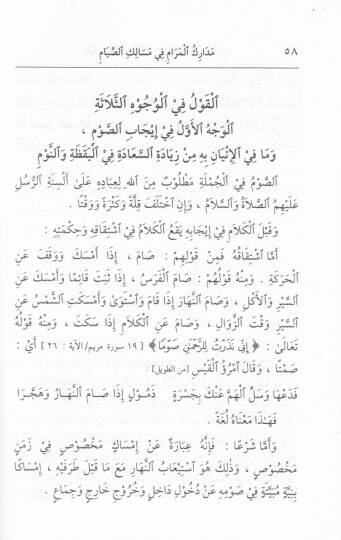 ٥٨ مَدَارِكُ ٱلْمَرَامِ فِي مَسَالِكِ ٱلصِّيَامِ
ٱلْقَوْلُ فِيْ ٱلْوُجُوْهِ ٱلثَّلَاثَةِ
ٱلْوَجْهُ ٱلأَوَّلُ فِيْ إِيْجَابِ ٱلصَّوْمِ ،
وَمَا فِيْ ٱلْإِتْيَانِ بِهِ مِنْ زِيَادَةِ ٱلسَّعَادَةِ فِيْ ٱلْيَقَظَةِ وَٱلنَّوْمِ
ٱلصَّوْمُ فِيْ ٱلْجُمْلَةِ مَطْلُوْبٌ مِنَ ٱللهِ لِعِبَادِهِ عَلَىٰ أَلْسِنَةِ ٱلرُّسُلِ
عَلَيْهِمُ ٱلصَّلَاةُ وَٱلسَّلَامُ ، وَإِنِ ٱخْتَلَفَ قِلَّةً وَكَثْرَةً وَوَقْتًا .
وَقَبْلَ ٱلْكَلَامِ فِيْ إِيْجَابِهِ يَقَعُ ٱلْكَلَامُ فِيْ ٱشْتِقَاقِهِ وَحِكْمَتِهِ :
أَمَّا ٱشْتِقَاقُهُ فَمِنْ قَوْلِهِمْ : صَامَ ، إِذَا أَمْسَكَ وَوَقَفَ عَنِ
ٱلْحَرَكَةِ . وَمِنْهُ قَوْلُهُمْ : صَامَ ٱلْفَرَسُ ، إِذَا ثَبَتَ قَائِمًا وَأَمْسَكَ عَنِ
ٱلسَّيْرِ وَٱلأَكْلِ ، وَصَامَ ٱلنَّهَارُ إِذَا قَامَ وَٱسْتَوَىٰ وَأَمْسَكَتِ ٱلشَّمْسُ عَنِ
ٱلسَّيْرِ وَقْتَ ٱلزَّوَالِ ، وَصَامَ عَنِ ٱلْكَلَامِ إِذَا سَكَتَ ، وَمِنْهُ قَوْلُهُ
تَعَالَىٰ : ﴿ إِنِّي نَذَرْتُ لِلرَّحْمَٰنِ صَوْمًا ﴾ [ ١٩ سورة مريم/الآية : ٢٦ ] أَيْ :
صَمْتًا ، وَقَالَ ٱمْرُؤُ ٱلْقَيْسِ [من الطويل] :
فَدَعْهَا وَسَلِّ ٱلْهَمَّ عَنْكَ بِجَسْرَةٍ ذَمُوْلٍ إِذَا صَامَ ٱلنَّهَارُ وَهَجَّرَا
فَهَـٰذَا مَعْنَاهُ لُغَةً .
وَأَمَّا شَرْعًا : فَإِنَّهُ عِبَارَةٌ عَنْ إِمْسَاكٍ مَخْصُوْصٍ فِيْ زَمَنٍ
مَخْصُوْصٍ ، وَذٰلِكَ هُوَ ٱسْتِيْعَابُ ٱلنَّهَارِ مَعَ مَا قَبْلَ طَرَفَيْهِ ، إِمْسَاكًا
بِنِيَّةٍ مُبَيَّتَةٍ فِيْ صَوْمِهِ عَنْ دُخُوْلِ دَاخِلٍ وَخُرُوْجِ خَارِجٍ وَجِمَاعٍ .